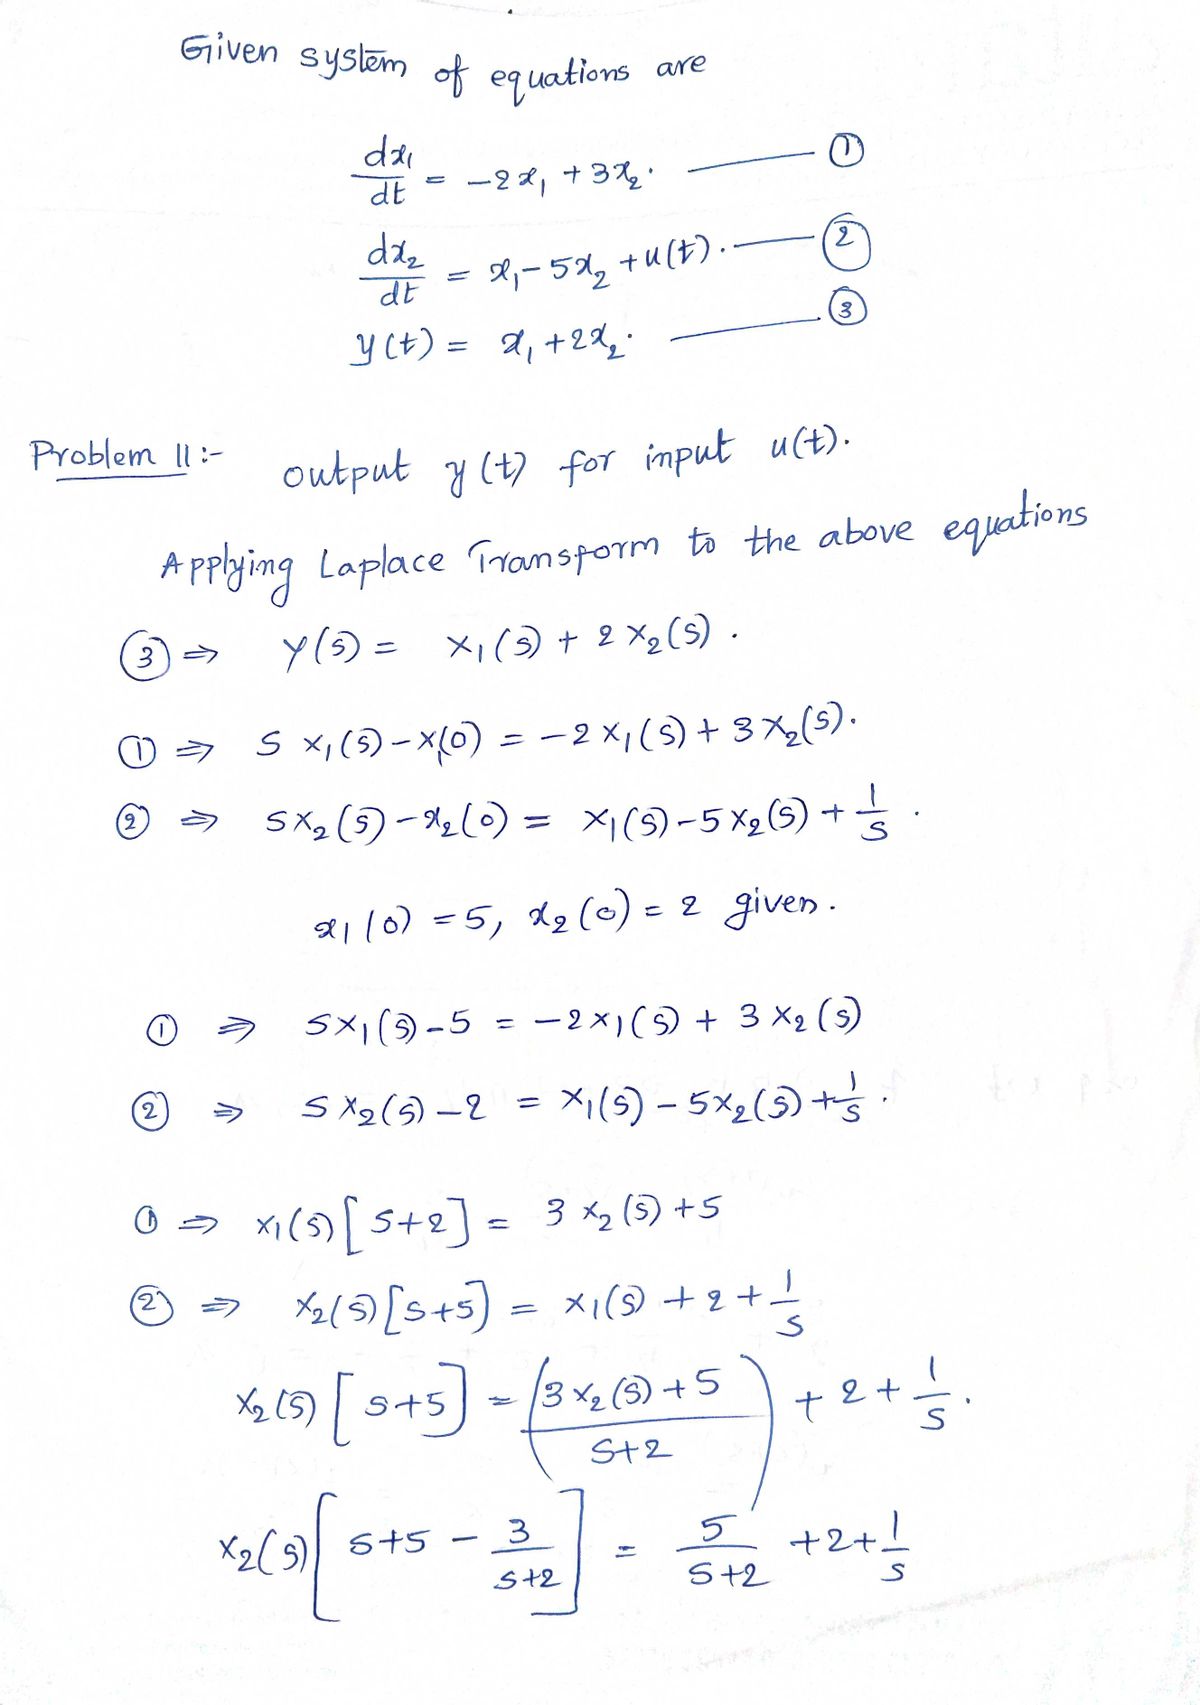 Given system of equations are
dx₁/dt = -2x₁ + 3x₂. ——— ①
dx₂/dt = x₁ - 5x₂ + u(t). ——— ②
y(t) = x₁ + 2x₂. ——— ③
Problem 11 :- output y(t) for input u(t).
Applying Laplace Transform to the above equations
③ ⇒ Y(s) = X₁(s) + 2X₂(s).
① ⇒ S X₁(s) - X₁(0) = -2X₁(s) + 3X₂(s).
② ⇒ SX₂(s) - x₂(0) = X₁(s) - 5X₂(s) + 1/s.
x₁(0) = 5, x₂(0) = 2 given.
① ⇒ SX₁(s) - 5 = -2X₁(s) + 3X₂(s)
② ⇒ SX₂(s) - 2 = X₁(s) - 5X₂(s) + 1/s.
① ⇒ X₁(s)[S+2] = 3X₂(s) + 5
② ⇒ X₂(s)[S+5] = X₁(s) + 2 + 1/s
X₂(s)[S+5] = (3X₂(s)+5 / S+2) + 2 + 1/s.
X₂(s)[S+5 - 3/S+2] = 5/S+2 + 2 + 1/s